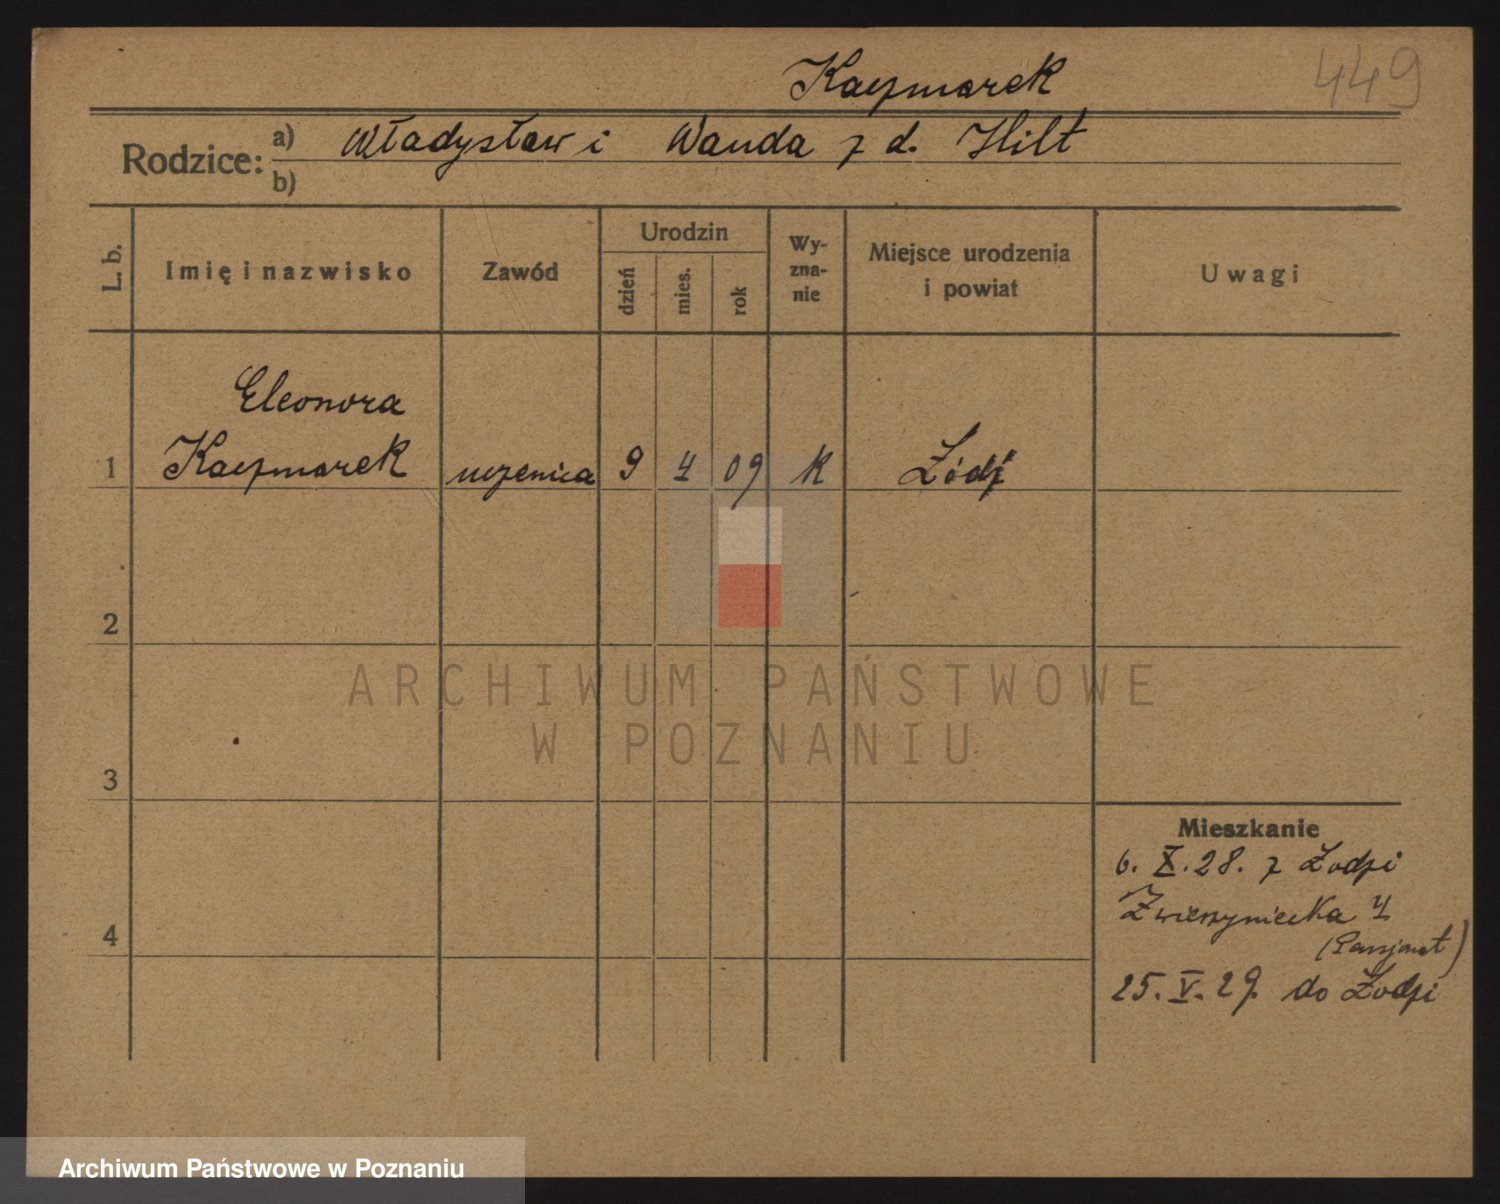 Kaczmarek
449
Rodzice: a) Władysław i Wanda z d. Hilt
b)
L. b.
Imię i nazwisko
Zawód
Urodzin
dzień
mies.
rok
Wy-
zna-
nie
Miejsce urodzenia
i powiat
Uwagi
Eleonora
1 Kaczmarek uczenica 9 4 09 K Łódź
2
ARCHIWUM PAŃSTWOWE
W POZNANIU
3
Mieszkanie
6. X. 28. z Łodzi
Zwierzyniecka 4
(Pensjonat)
4
25. V. 29. do Łodzi
Archiwum Państwowe w Poznaniu